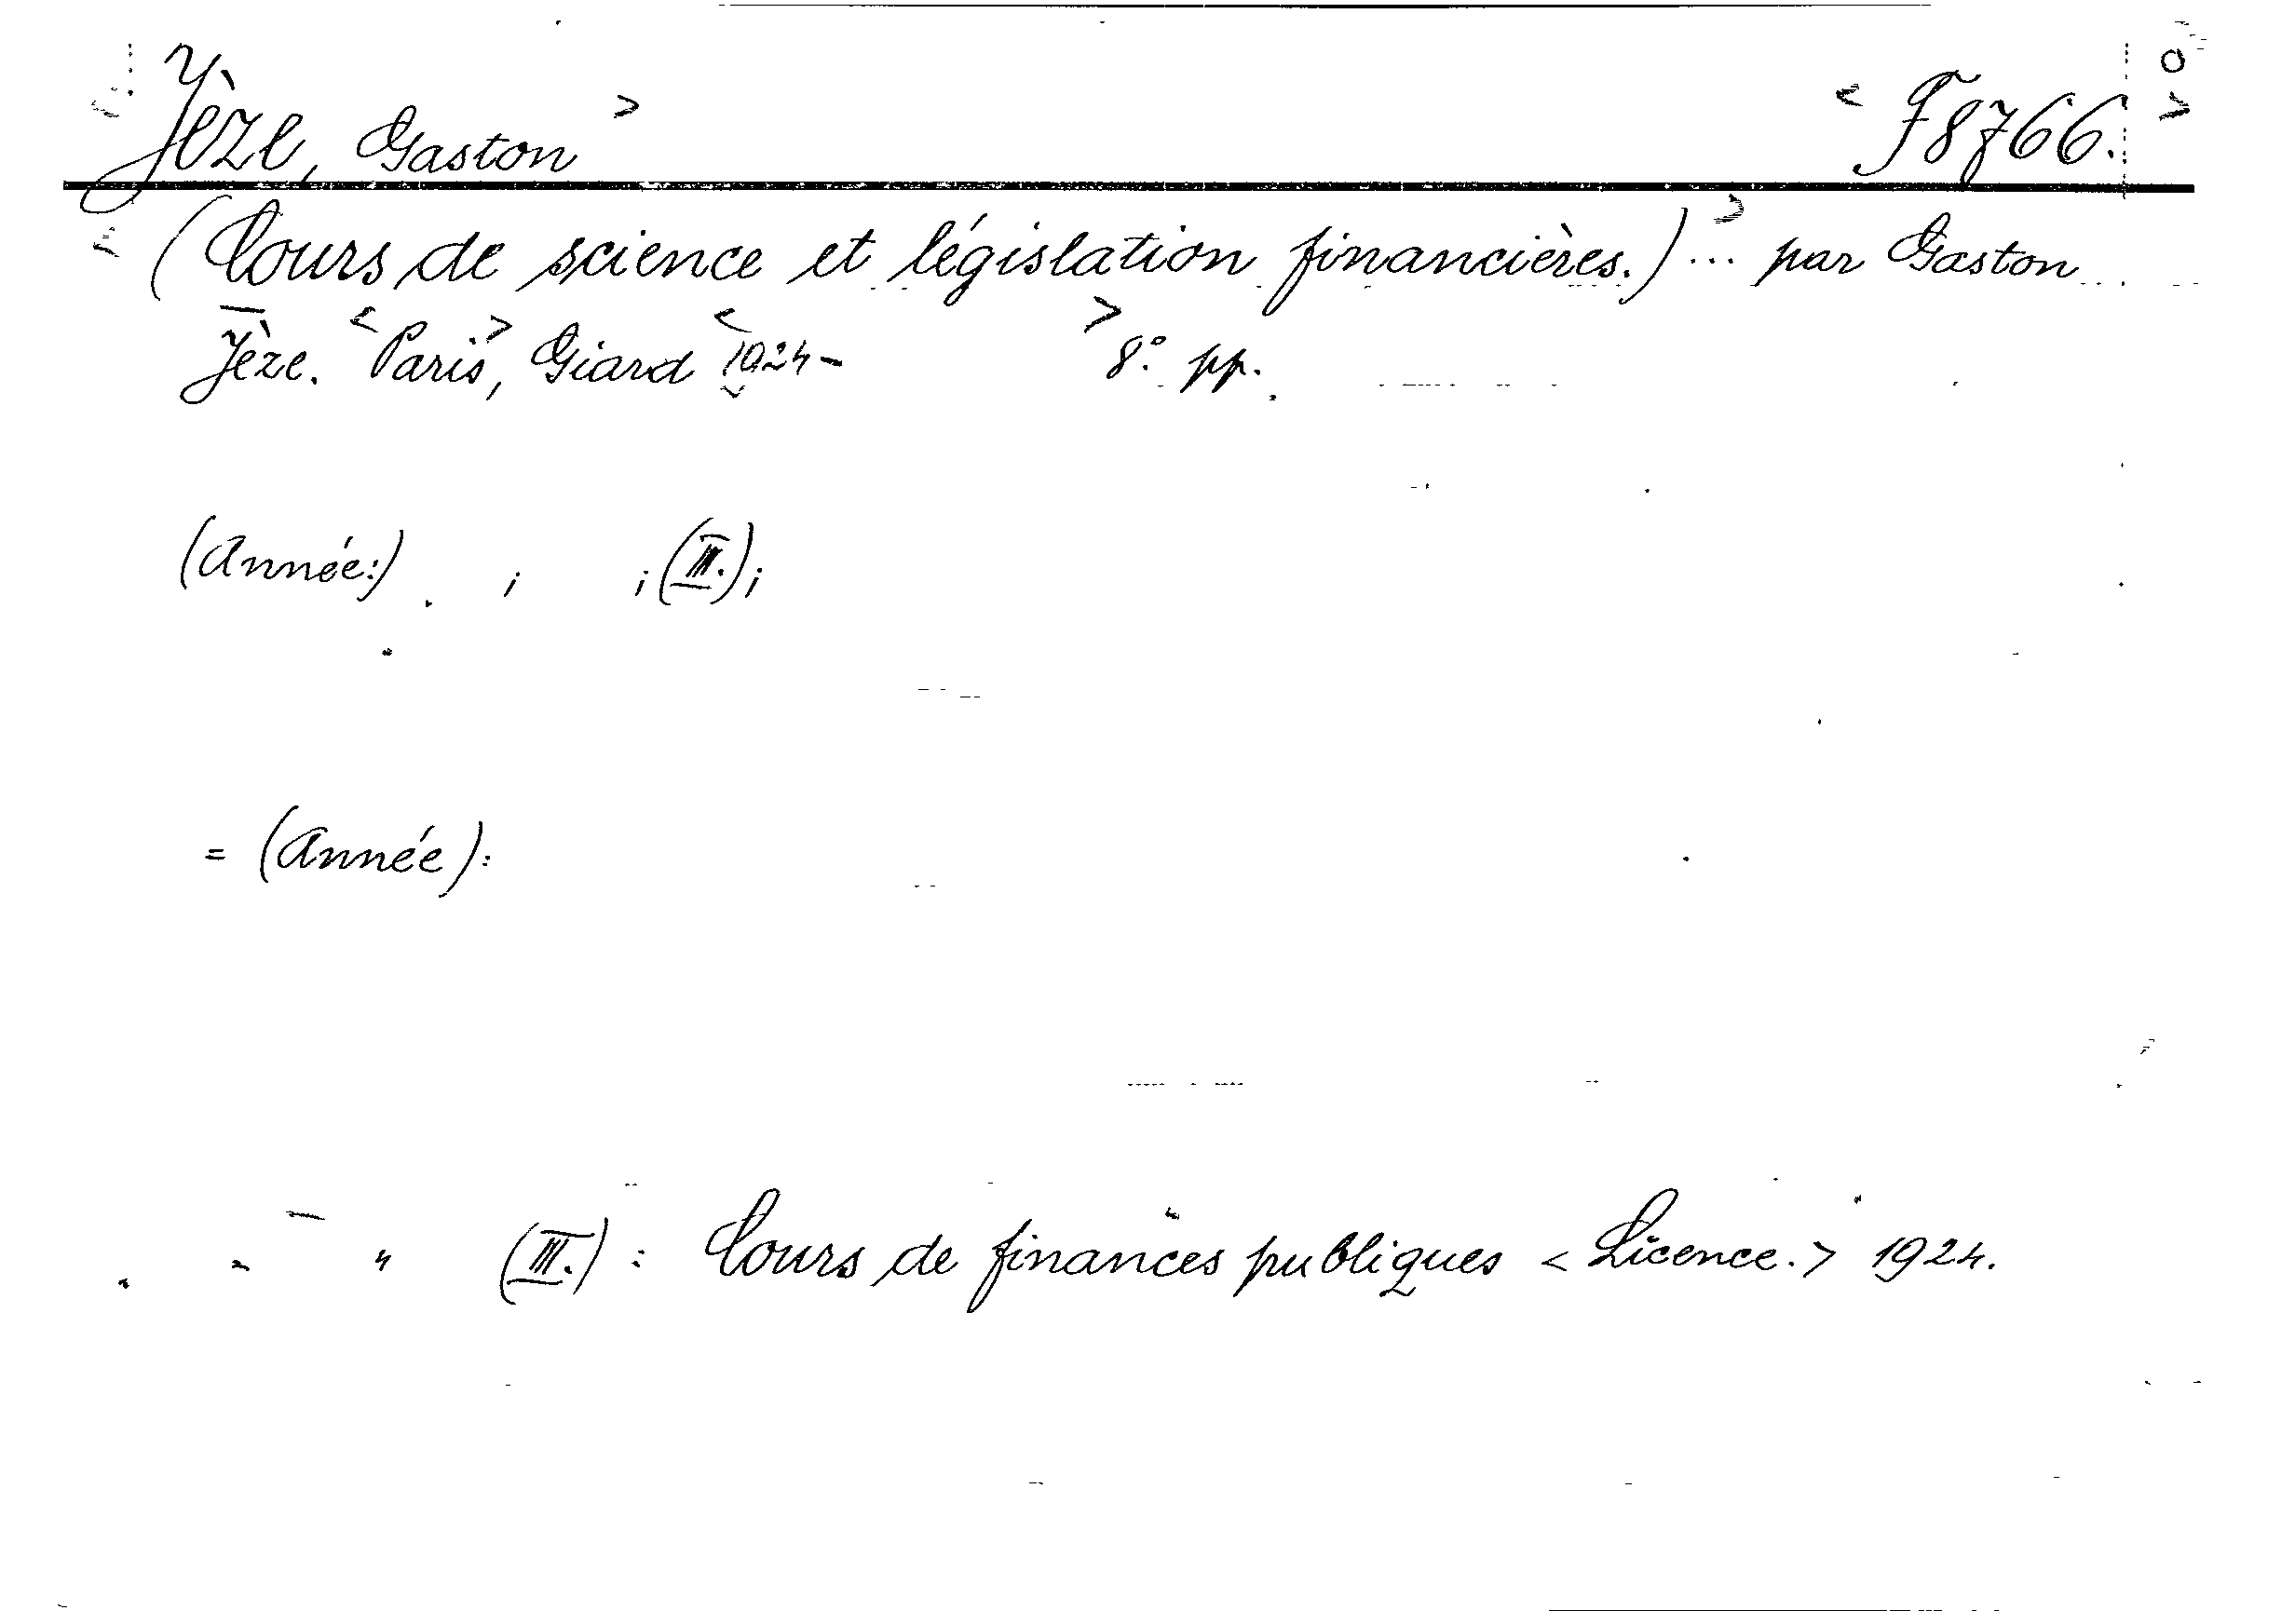 Jèze, Gaston > < F8766. >
(Cours de science et législation financières.) > ... par Gaston
Jèze. <Paris>, Giard <1924- > 8°. pp.
(Année:) ; ; (III.);
= (Année):
" (III.) : Cours de finances publiques <Licence.> 1924.